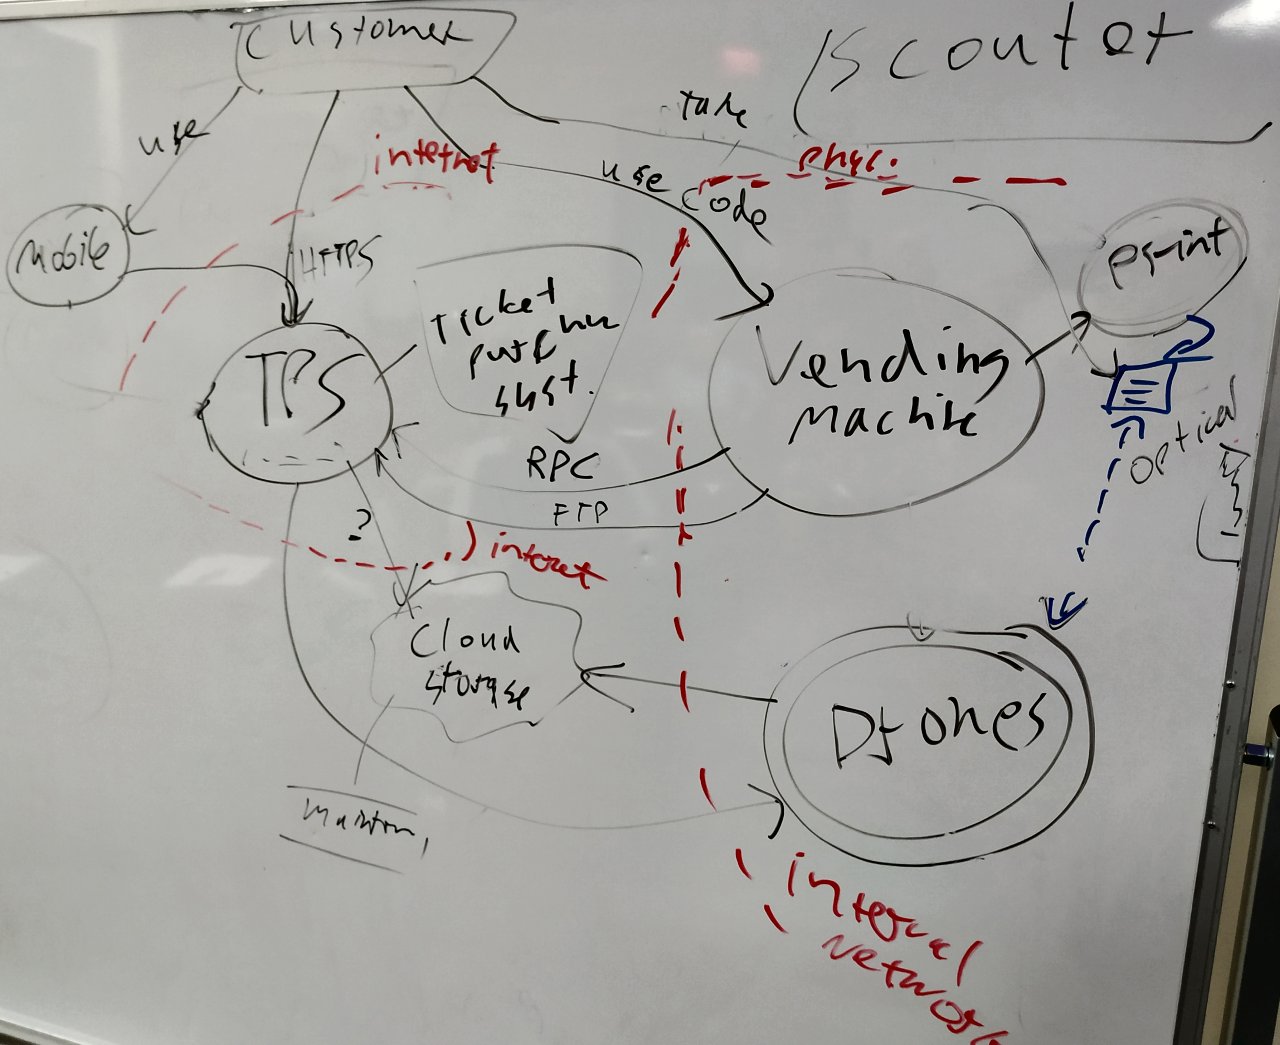 Customer
Scouter
take
use
internet
phyc.
use
code
Mobile
HTTPS
print
Ticket
TPS
Vending
Machine
syst.
Optical
RPC
FTP
?
internet
Cloud
storage
Drones
internal
network